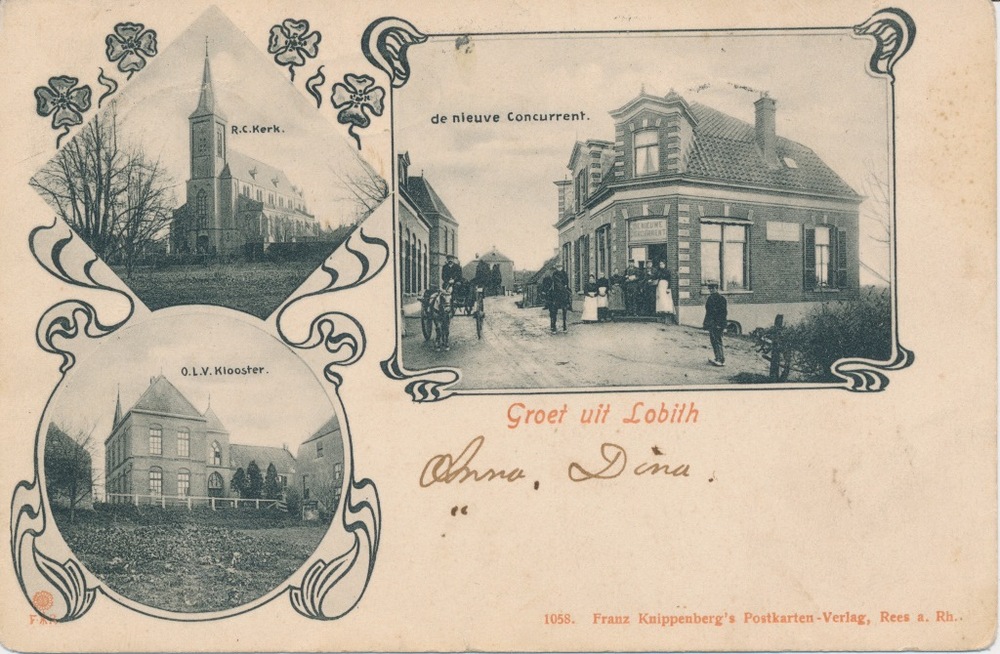 R.C.Kerk.
de nieuve Concurrent.
DE NIEUWE
CONCURRENT
O.L.V. Klooster.
Groet uit Lobith
Anna, Dina.
"
1058. Franz Knippenberg's Postkarten-Verlag, Rees a. Rh..